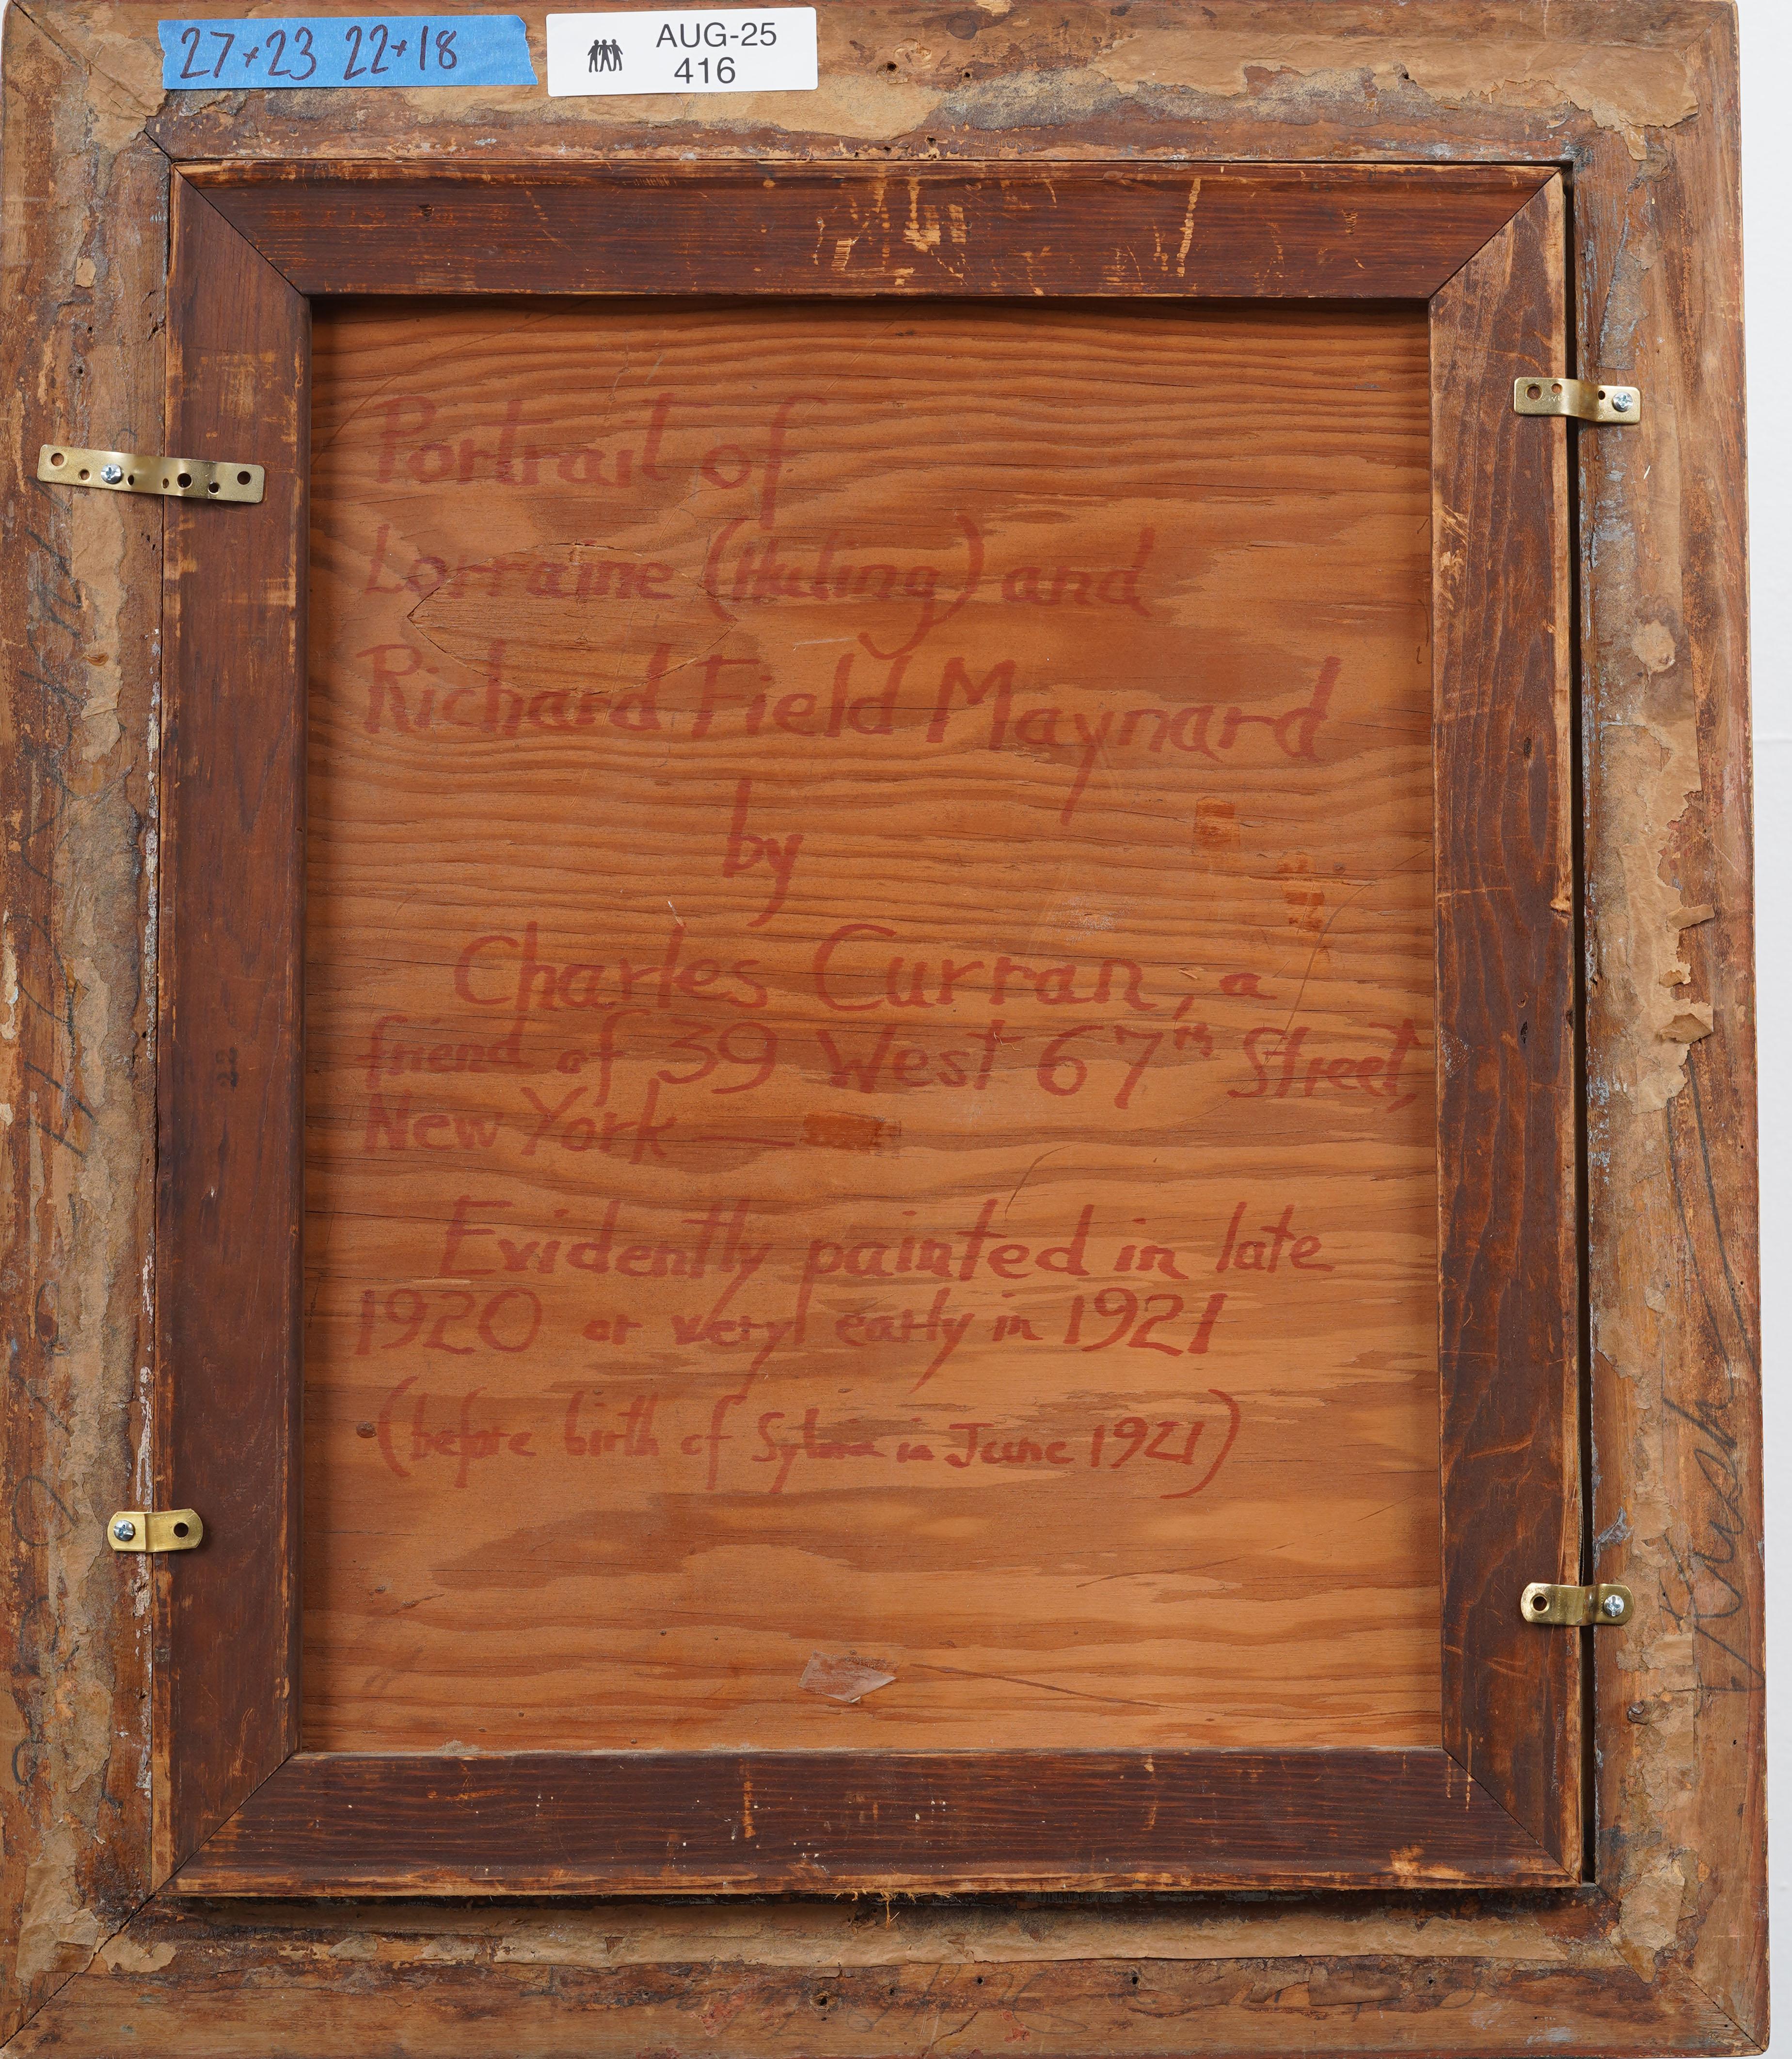 27+23 22+18
AUG-25
416
Portrait of
Lorraine (Huling) and
Richard Field Maynard
by
Charles Curran, a
friend of 39 West 67th Street,
New York —
Evidently painted in late
1920 or very early in 1921
(before birth of Sylvia in June 1921)
Rush